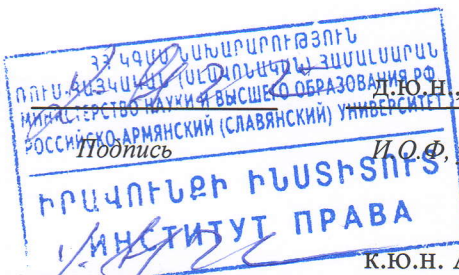 ՀՀ ԿԳՄՍ ՆԱԽԱՐԱՐՈՒԹՅՈՒՆ
ՌՈՒՍ-ՀԱՅԿԱԿԱՆ (ՍԼԱՎՈՆԱԿԱՆ) ՀԱՄԱԼՍԱՐԱՆ
МИНИСТЕРСТВО НАУКИ И ВЫСШЕГО ОБРАЗОВАНИЯ РФ
РОССИЙСКО-АРМЯНСКИЙ (СЛАВЯНСКИЙ) УНИВЕРСИТЕТ
д.ю.н.,
Подпись И.О.Ф,
ԻՐԱՎՈՒՆՔԻ ԻՆՍՏԻՏՈՒՏ
ИНСТИТУТ ПРАВА
к.ю.н.